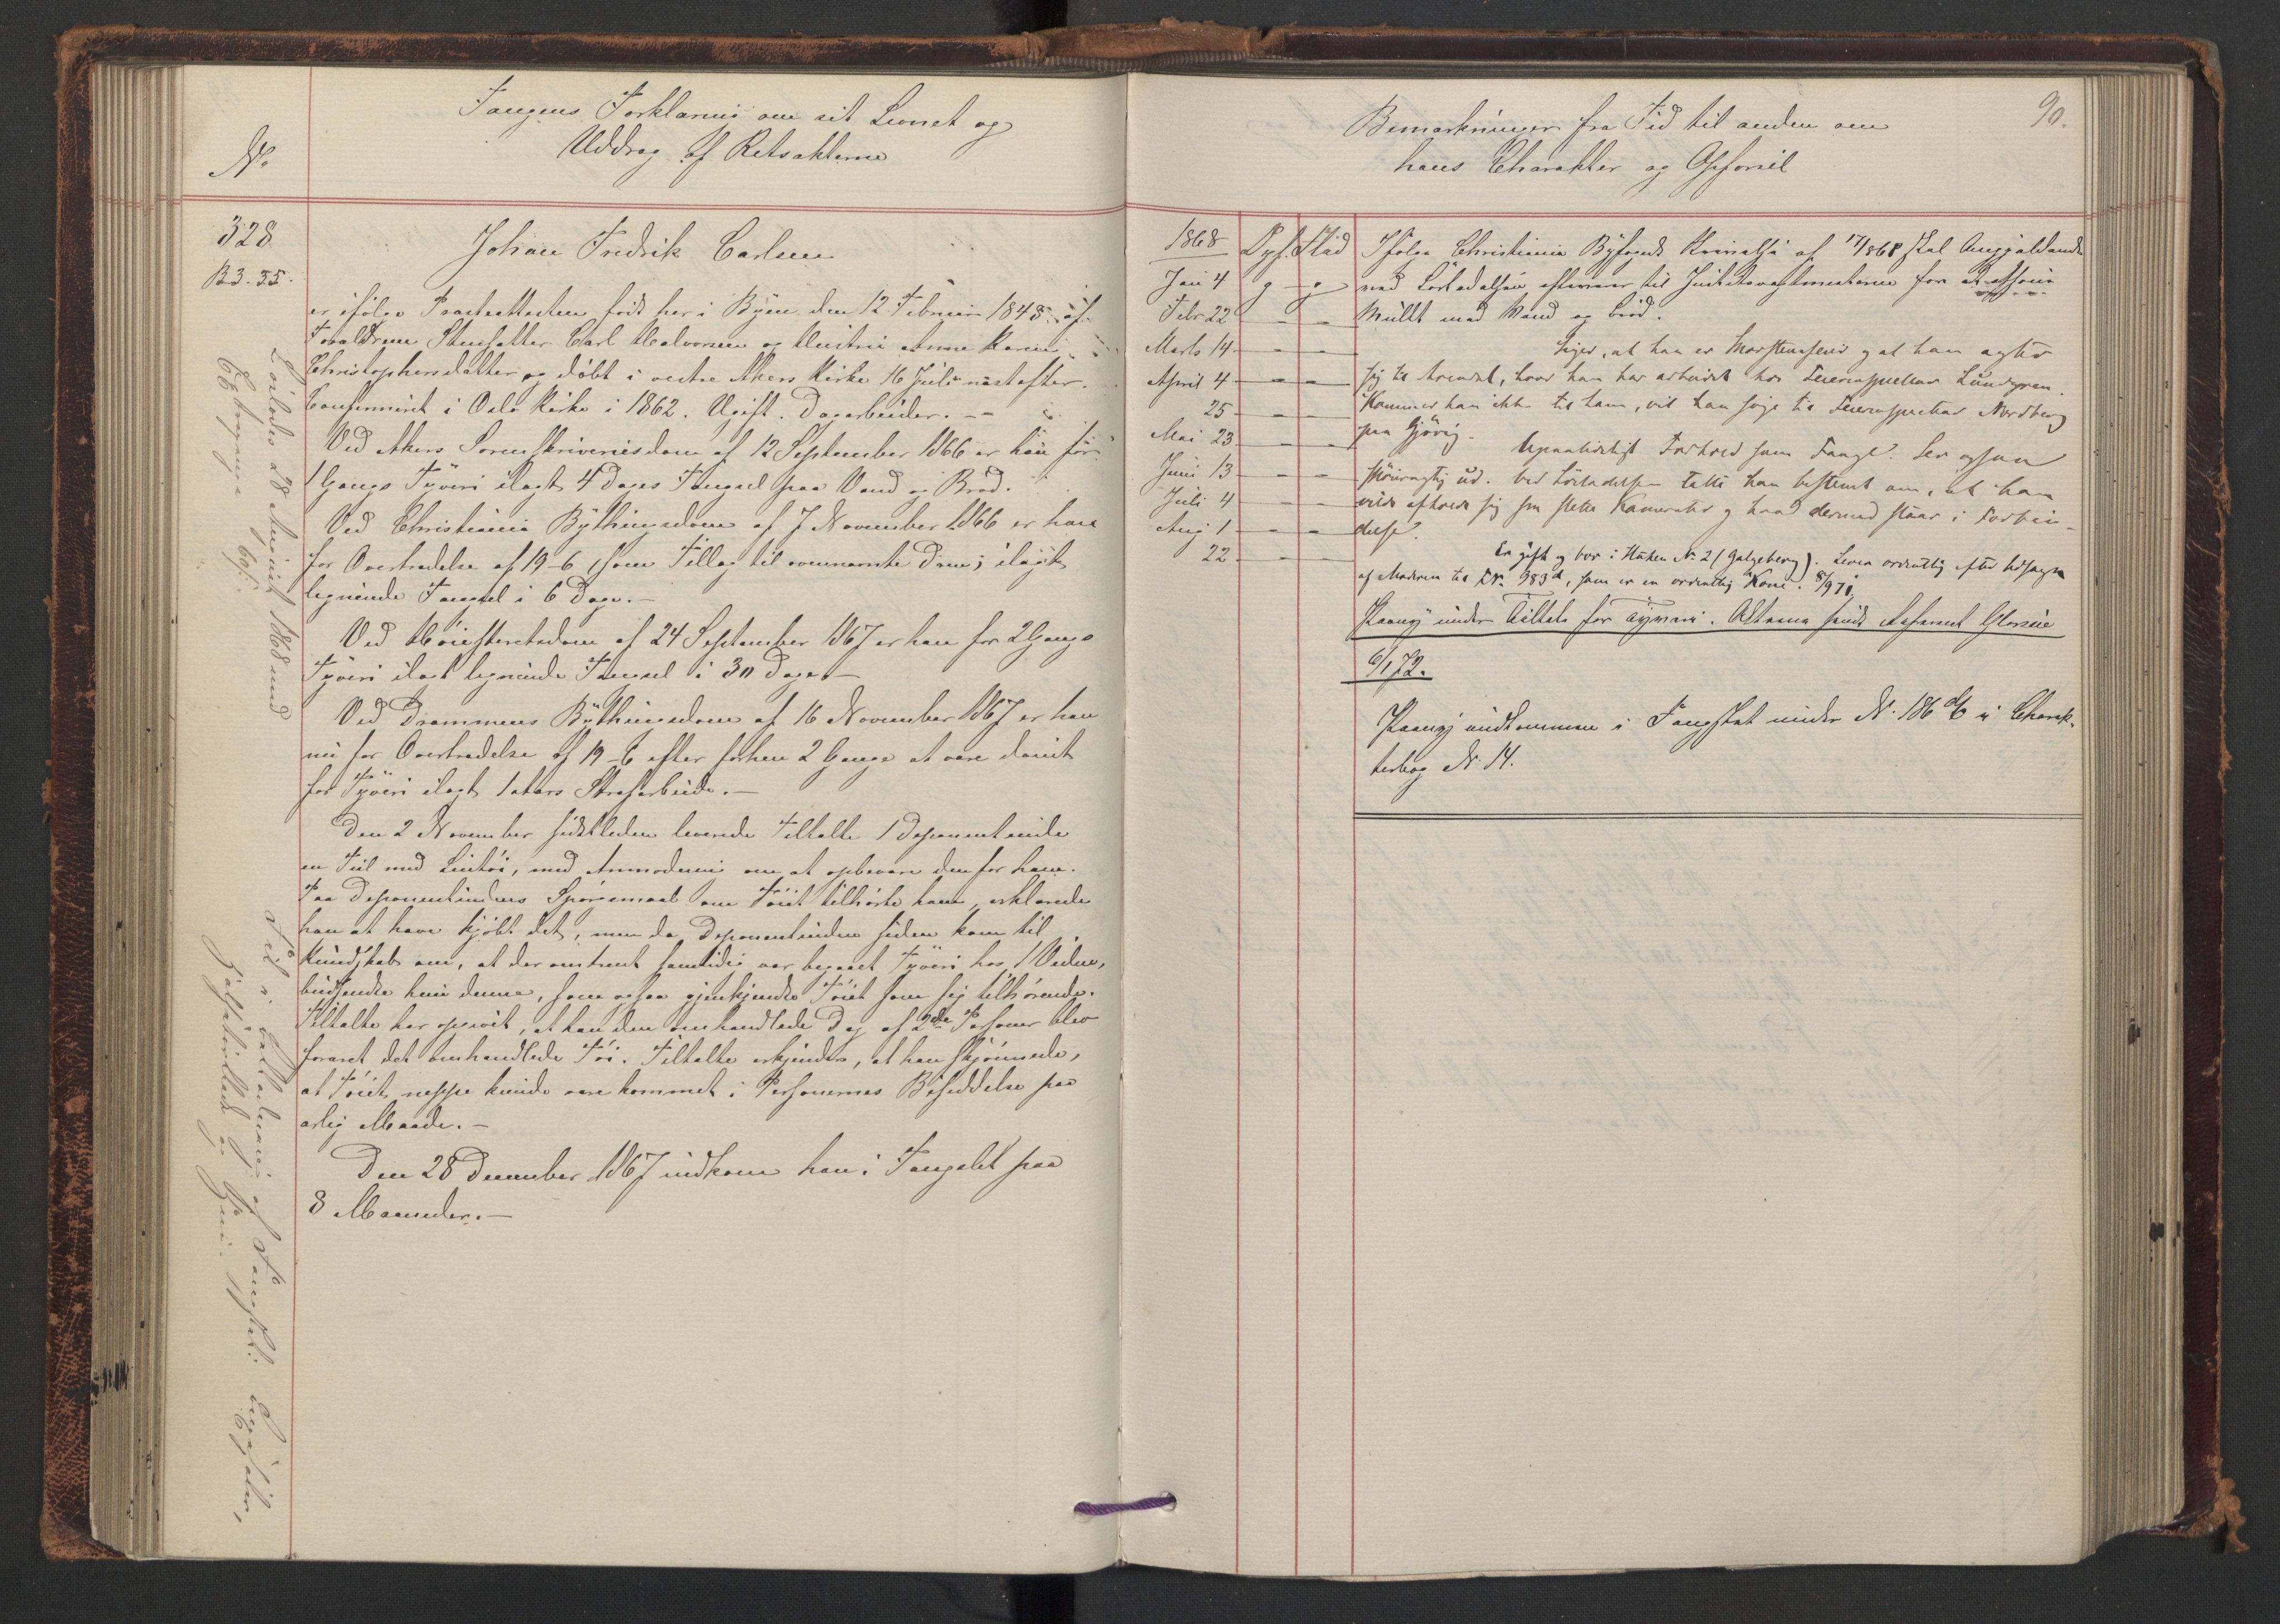 Fangens Forklaring om sit Levnet og
Uddrag af Retsakterne
No
328
B 3. 35.
Johan Fredrik Carlsen
er ifølge Præsteattesten født her i Byen den 12 Februar 1848 af
Forældrene Carl Halvorsen og Hustru Anne Karin
Christophersdatter og døbt i vestre Akers Kirke 16 Juli næstefter.
Confirmeret i Oslo Kirke i 1862. Ugift. Dagarbeider. --
Ved Akers Sorenskriveriesdom af 12 September 1866 er han for
1 Gangs Tyveri ilagt 4 Dages Fængsel paa Vand og Brød.
Ved Christiania Bythingsdom af 7 November 1866 er han
for Overtrædelse af 19-6, som Tillæg til ovennævnte Dom, ilagt
lignende Fængsel i 6 Dage.-
Ved Høiesteretsdom af 24 September 1867 er han for 2 Gangs
Tyveri ilagt lignende Fængsel i 30 Dage.-
Ved Drammens Bythingsdom af 16 November 1867 er han
nu for Overtrædelse af 19-6 efter forhen 2 Gange at være dømt
for Tyveri ilagt 1 Aars Strafarbeide.-
Den 2 November sidstleden leverede Tiltalte 1 Deponentinde
en med Lintøi, med Anmodning om at opbevare den for ham.
Paa Deponentindens Spørgsmaal om Tøiet tilhørte ham, erklærede
han at have kjøbt det, men da Deponentinden siden kom til
Kundskab om, at der omtrent samtidig var begaaet Tyveri hos 1 Vidne,
budsendte hun denne, som ogsaa gjenkjendte Tøiet som sig tilhørende.
Tiltalte har opgivet, at han den omhandlede Dag af 2de Personer blev
foræret det omhandlede Tøi. Tiltalte erkjender, at han skjønnede,
at Tøiet neppe kunde være kommet i Personernes Besiddelse paa
ærlig Maade.-
Den 28 December 1867 indkom han i Fængslet paa
8 Maaneder.-
Løslades 28 August 1868 med
Bemærkninger fra Tid til anden om
hans Charakter og Opførsel
90.
1868 Opf. Flid
Jan 4 g g
Febr 22 - -
Marts 14 - -
April 4 - -
25 - -
Mai 23 - -
Juni 13 - -
Juli 4 - -
Aug 1 - -
22 - -
Ifølge Christiania Byfogeds Skrivelse af 17/1 868 skal Angjældende
ved Løsladelsen afleveres til Justitsvagtmesteren for at afsone
Mulkt med Vand og brød.
Siger, at han er Murstenssvend og at han agter
sig til Arendal, hvor han har arbeidet hos Feierinspecteur Lundgren
Kommer han ikke til ham, vil han søge til Feierinspecteur Nordberg
paa Gjøvig. Upaaklageligt Forhold som Fange. Ser ogsaa
ud. Ved Løsladelsen talte han bestemt om, at han
vilde afholde sig fra slette Kamerater og hvad dermed staar i Forbin-
delse.
Er gift og bor i Haken No 2 (Galgeberg). Lever ordentlig efter Udsagn
af Moderen til F No 983d, som er en ordentlig Kone. 8/9 71.
Paany under Tiltale for Tyveri. Akterne sendt
6/1 72.
Paany indkommen i Fængslet under No. 186 i Charak-
terbog No. 14.